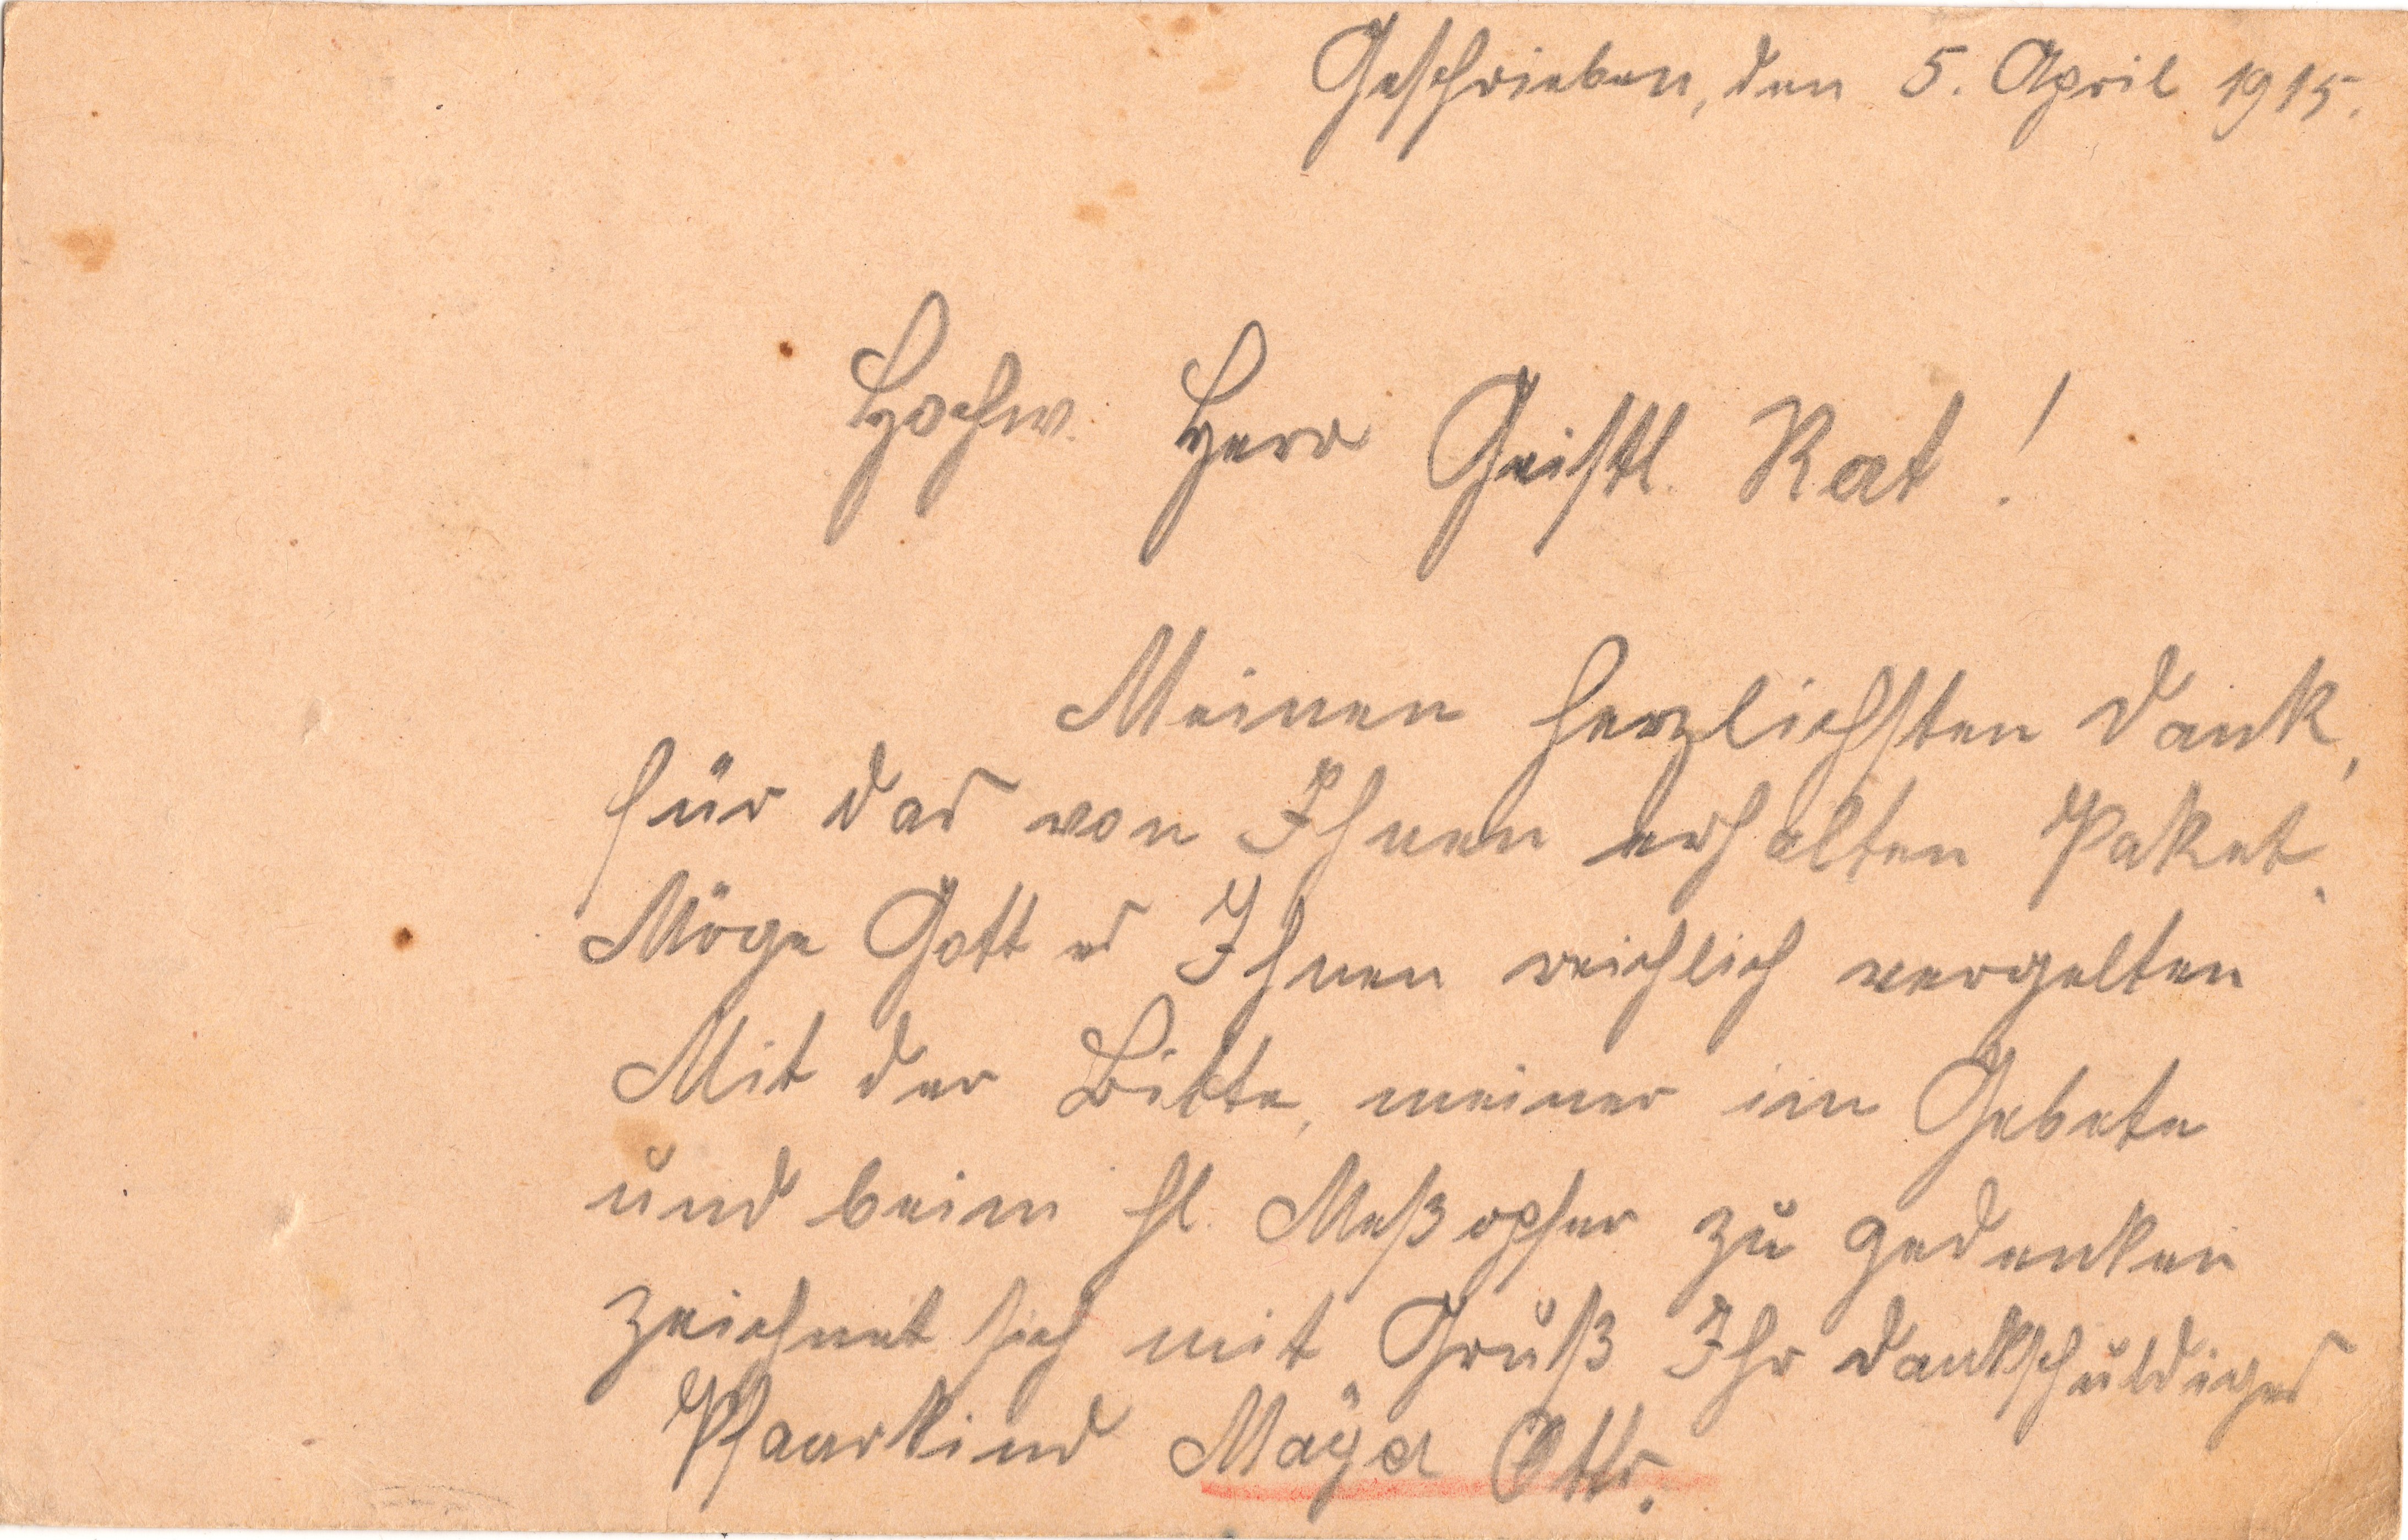 Geschrieben, den 5. April 1915.
Hochw. Herr Geistl. Rat!
Meinen herzlichsten Dank,
für das von Ihnen erhalten Paket.
Möge Gott es Ihnen reichlich vergelten
Mit der Bitte, meiner im Gebete
und beim hl. Meßopfer zu gedenken
zeichnet sich mit Gruß Ihr dankschuldiges
Pfaarkind Mayer Otto.